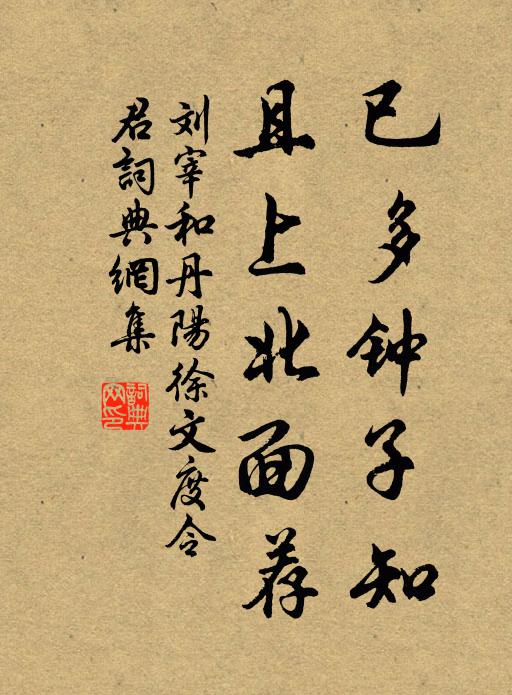 已多钟子知
且上北面荐
刘宰和丹陽徐文度令
君詞典網集
詞典
网印